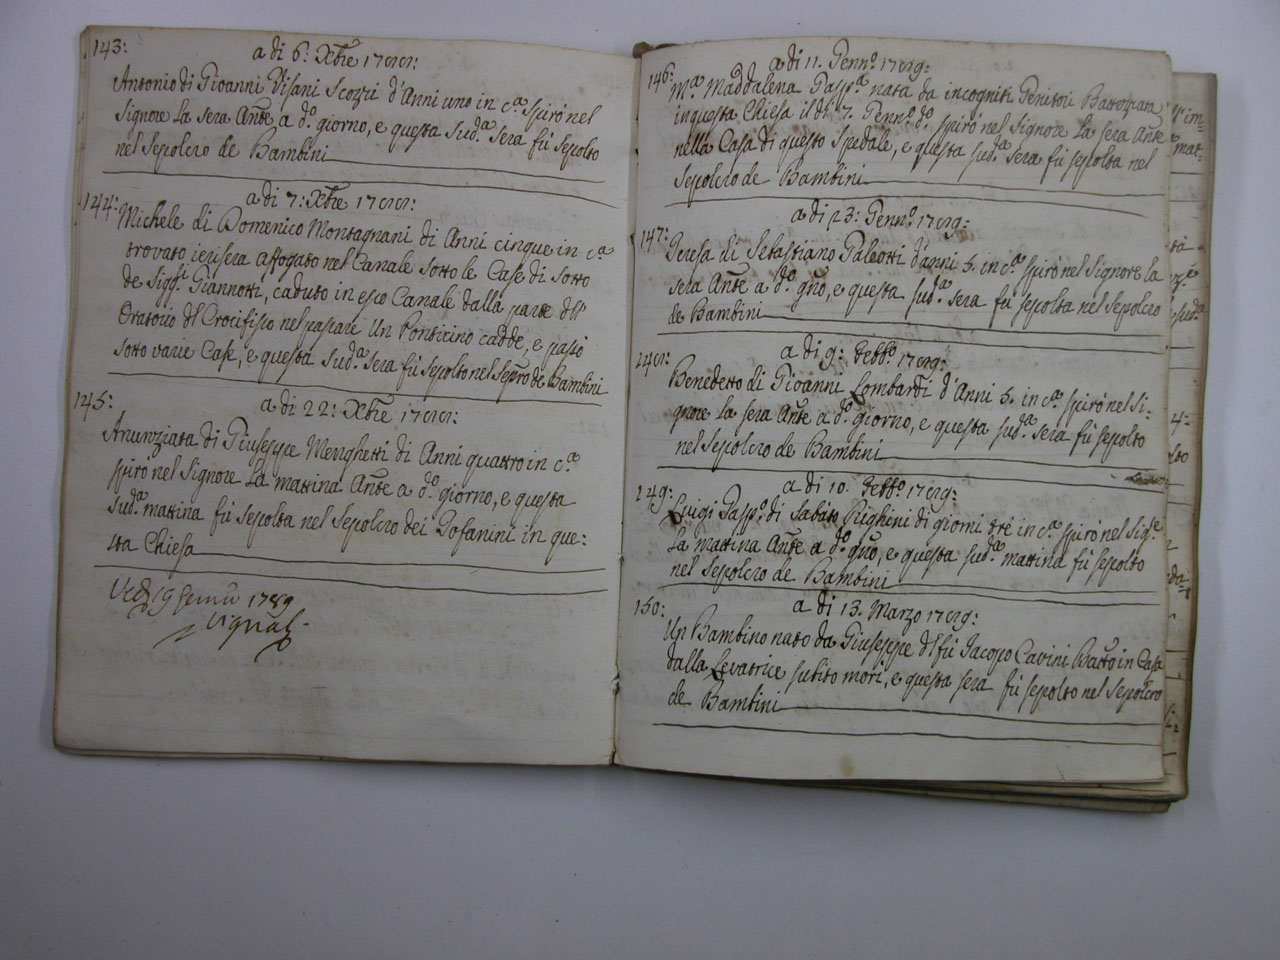 143:
a di 6: Xbre 1788:
Antonio di Giovanni Visani Scozzi d'Anni uno in c.ª spirò nel
Signore la sera Ante a d.º giorno, e questa sud.ª sera fù sepolto
nel Sepolcro de Bambini
144:
a di 7: Xbre 1788:
Michele di Domenico Montagnani di Anni cinque in c.ª
trovato ierisera affogato nel Canale sotto le Case di sotto
de Sigg.i Giannotti, caduto in esso Canale dalla parte dll'
Oratorio dl Crocifisso nel passare un Ponticino cadde, e passò
sotto varie Case, e questa sud.ª sera fù sepolto nel Sepro de Bambini
145:
a di 22: Xbre 1788:
Anunziata di Giuseppe Menghetti di Anni quattro in c.ª
spirò nel Signore la mattina Ante a d.º giorno, e questa
sud.ª mattina fù sepolta nel Sepolcro dei Gofanini in que:
sta Chiesa
1789
146:
a di 11. Genn.º 1789:
M.ª Maddalena Gasp.ª nata da incogniti Genitori Battezzata
in questa Chiesa il dì 7. Genn.º d.º spirò nel Signore la sera Ante
nella Casa di questo Spedale, e questa sud.ª sera fù sepolta nel
Sepolcro de Bambini
147:
a di 23: Genn.º 1789:
Teresa di Sebastiano Paleotti d'anni 5. in c.ª spirò nel Signore la
sera Ante a d.º gño, e questa sud.ª sera fù sepolta nel Sepolcro
de Bambini
148:
a di 9: Febb.º 1789:
Benedetto di Giovanni Lombardi d'Anni 5. in c.ª spirò nel Si:
gnore la sera Ante a d.º giorno, e questa sud.ª sera fù sepolto
nel Sepolcro de Bambini
149:
a di 10. Febb.º 1789:
Luigi Gasp.º di Sabato Righini di giorni trè in c.ª spirò nel Sig.e
la mattina Ante a d.º gño, e questa sud.ª mattina fù sepolto
nel Sepolcro de Bambini
150:
a di 13. Marzo 1789:
Un Bambino nato da Giuseppe dl fù Jacopo Cavini Batto in Casa
dalla Levatrice subito morì, e questa sera fù sepolto nel Sepolcro
de Bambini